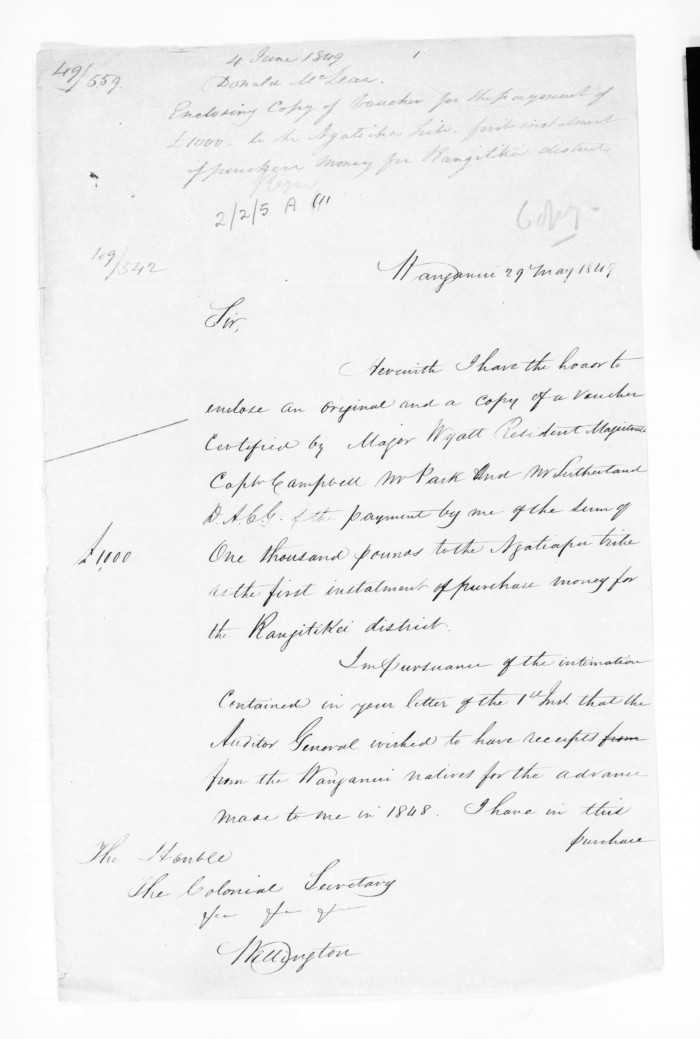 49/559.
4 June 1849
Donald McLean.
Enclosing Copy of Voucher for the payment of
£1000 to the Ngatiapa tribe first instalment
of purchase money for Rangitikei district
2/2/5 A
Copy.
49/542
Wanganui 29 May 1849
Sir,
Herewith I have the honor to
enclose an original and a copy of a voucher
Certified by Major Wyatt Resident Magistrate
Captn Campbell Mr Park and Mr Sutherland
D.A.C.G. of the payment by me of the sum of
£1000
One thousand pounds to the Ngatiapa tribe
as the first instalment of purchase money for
the Rangitikei district.
In pursuance of the intimation
Contained in your letter of the 1st Inst. that the
Auditor General wished to have receipts from
from the Wanganui natives for the advance
made to me in 1848. I have in this
purchase
The Honble
The Colonial Secretary
Wellington